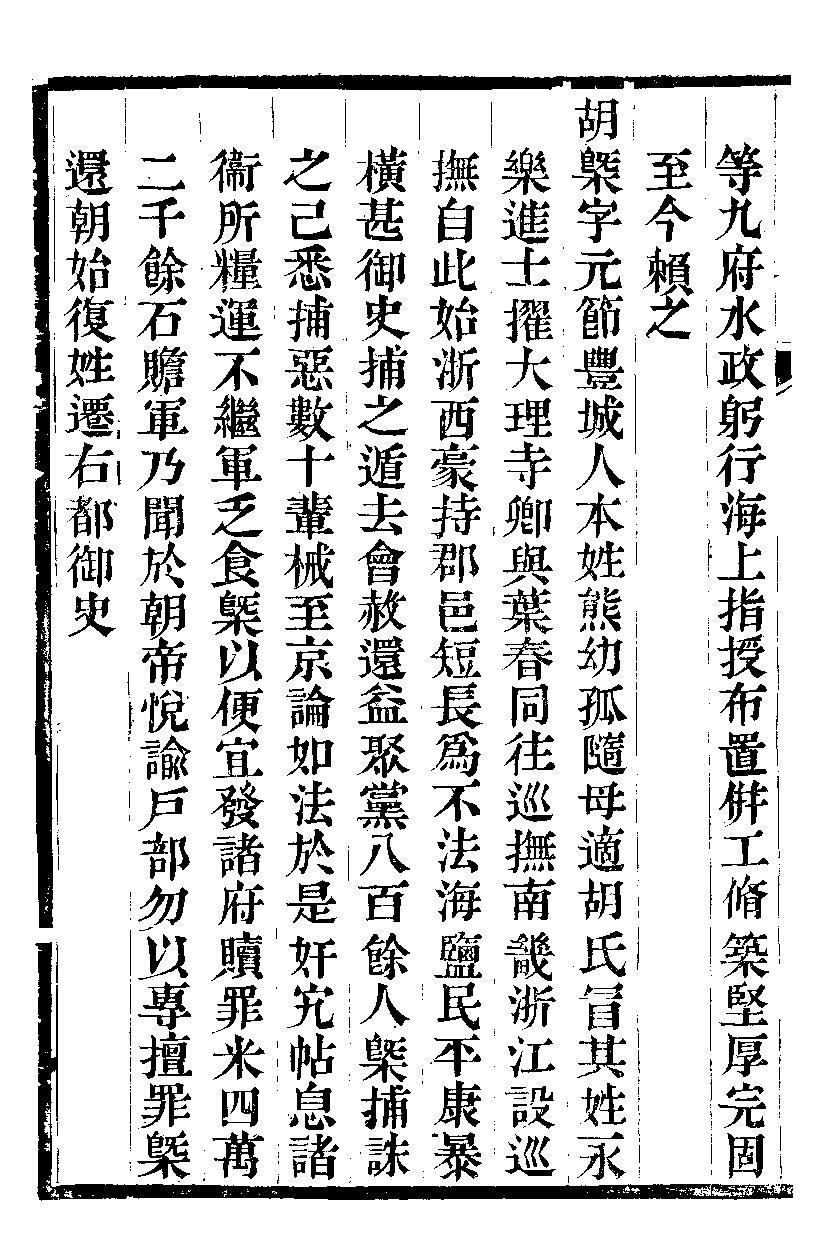 等九府水政躬行海上指授布置倂工脩築堅厚完固
至今賴之
胡㮣字元節豐城人本姓熊幼孤隨母適胡氏冒其姓永
樂進士擢大理寺卿與葉春同往巡撫南畿浙江設巡
撫自此始浙西豪持郡邑短長爲不法海鹽民平康暴
橫甚御史捕之遁去會赦還益聚黨八百餘人㮣捕誅
之己悉捕惡數十輩械至京論如法於是奸宄帖息諸
衞所糧運不繼軍乏食㮣以便宜發諸府贖罪米四萬
二千餘石贍軍乃聞於朝帝悅諭戶部勿以專擅罪㮣
還朝始復姓遷右都御史